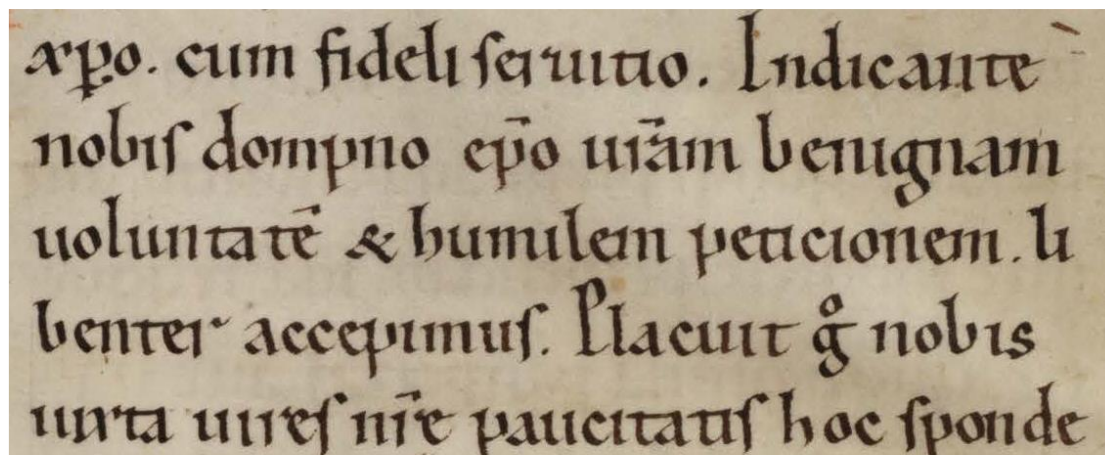 xp̄o. cum fideli seruitio. Indicante
nobis dompno ep̄o ur̄am benignam
uoluntatē & humilem peticionem. li
benter accepimus. Placuit gͦ nobis
iuxta uires nr̄e paucitatis hoc sponde